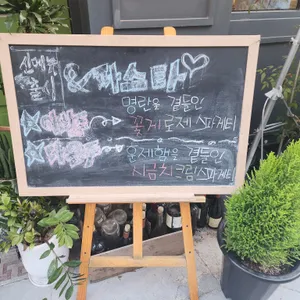 신메뉴
출시
&파스타
명란을 곁들인
꽃게로제스파게티
훈제햄을 곁들인
시금치크림스파게티